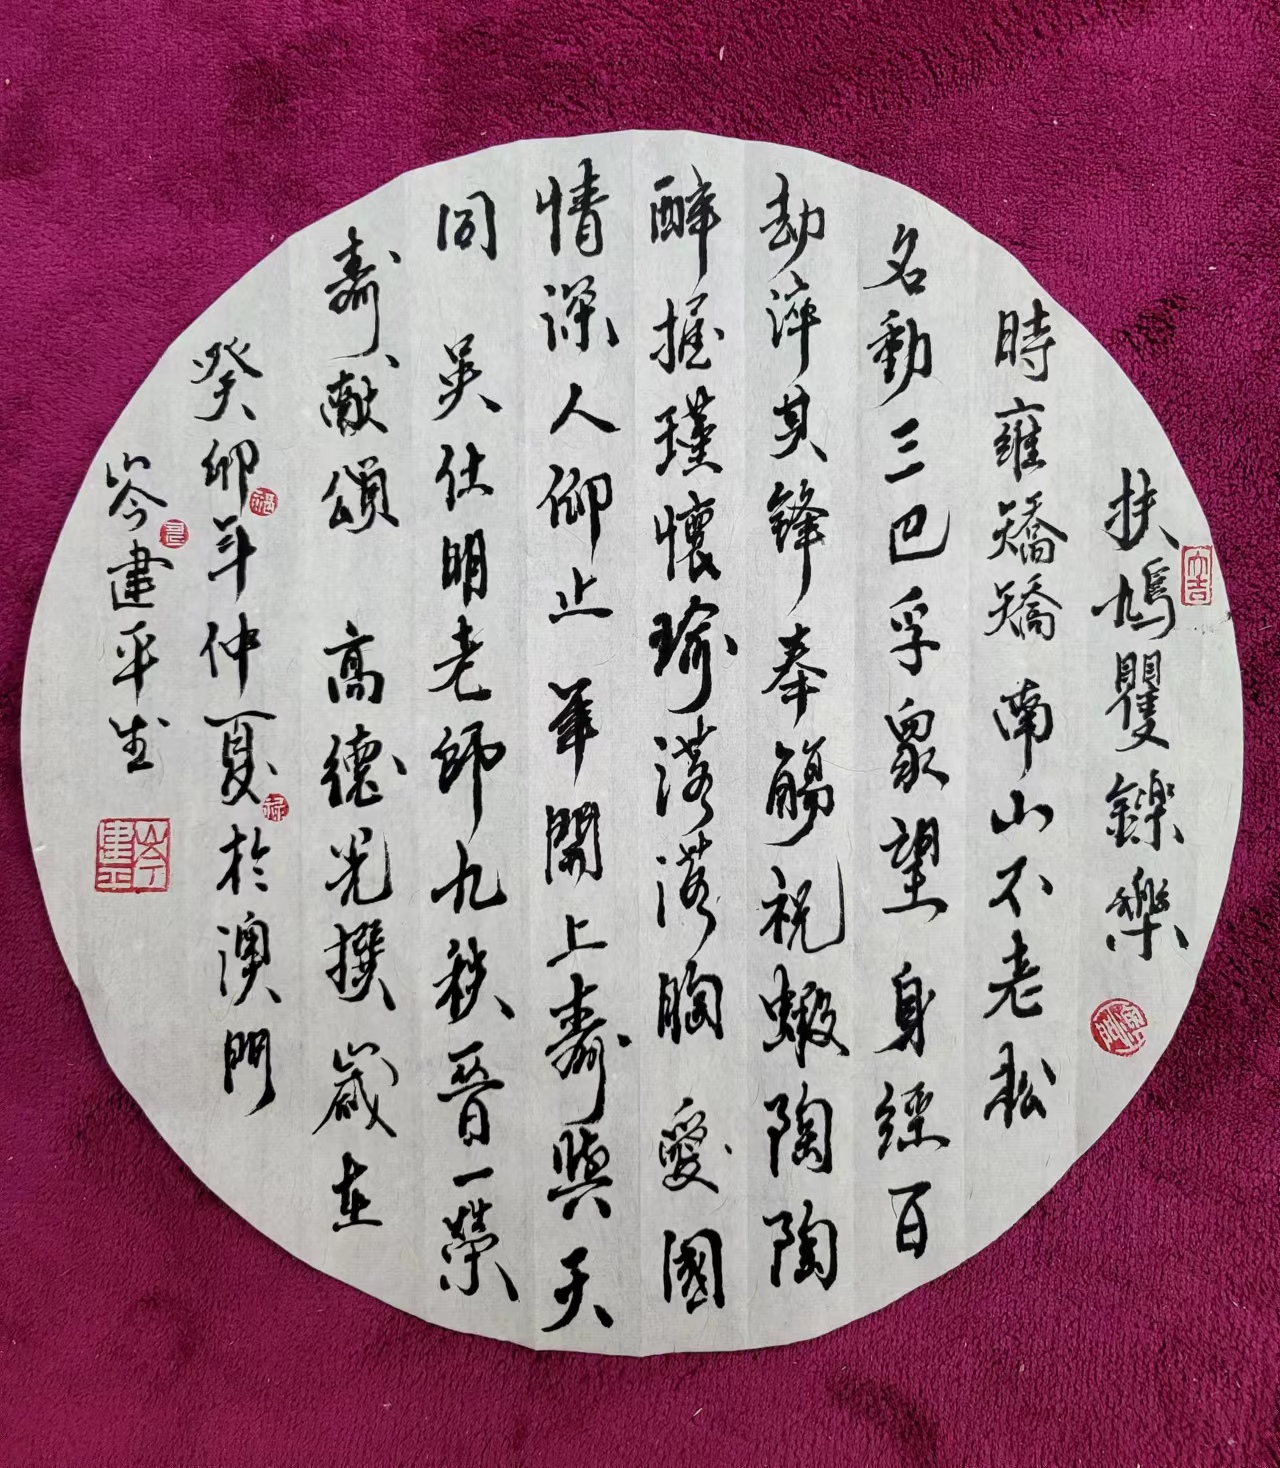 扶鳩矍鑠樂
時雍矯矯南山不老松
名動三巴孚眾望身經百
劫淬其鋒奉觴祝嘏陶陶
醉握瑾懷瑜落落胸愛國
情深人仰止筆開上壽與天
同吳仕明老師九秩晉一榮
壽獻頌高德光撰歲在
癸卯年仲夏於澳門
岑建平書
大吉
福
祿
岑建平